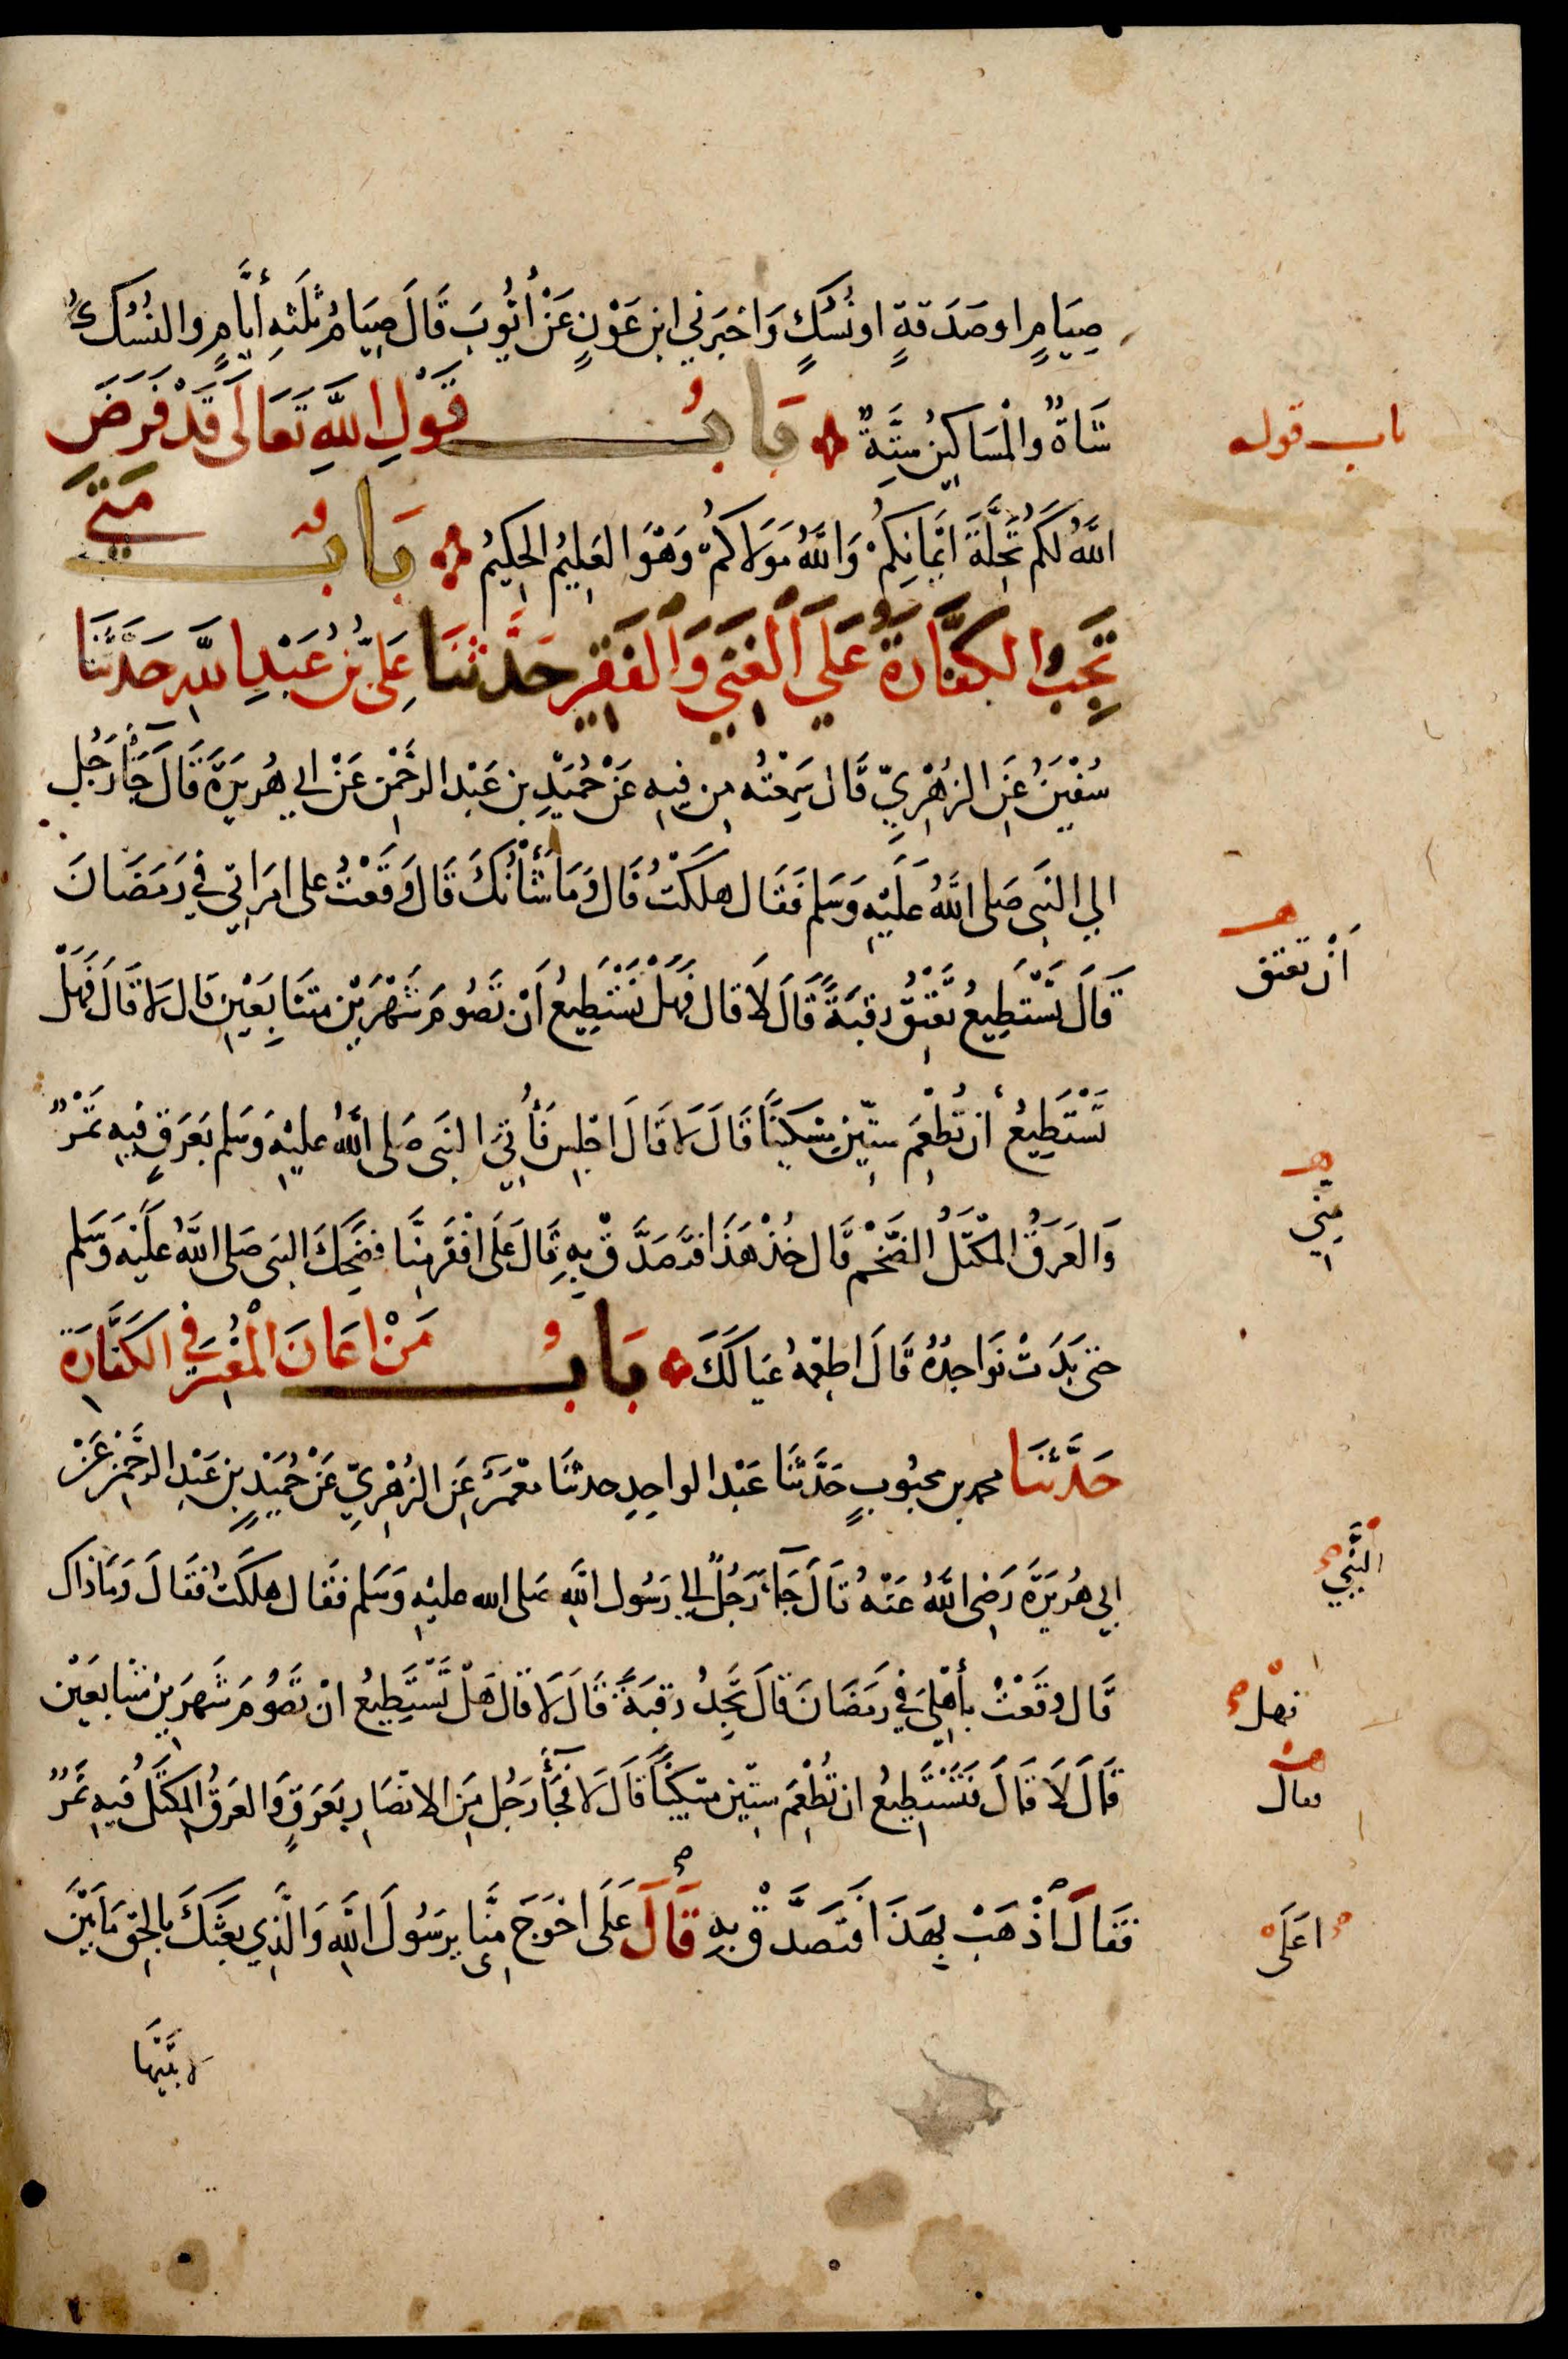 صِيَامٍ او صَدَقةٍ او نُسُكٍ وَاخبَرَني ابن عَوْنٍ عَنْ أيُّوبَ قَالَ صِيَامُ ثَلَثهِ أيَّامٍ والنُسُكُ
شَاةٌ والْمَسَاكِيْنُ سِتَّةٌ بَابُ قَوْلِ اللَّهِ تَعَالَى قَدْ فَرَضَ
باب قوله
اللَّهُ لَكُمْ تَحِلَّةَ ايْمَانِكُمْ وَاللَّهُ مَوَلَاكُمْ وَهْوَ العَلِيْمُ الحَكِيْمُ بَابُ مَتَى
تَجِبُ الكَفَّارَةُ عَلَي الْغَنِيِّ وَالْفَقِيْرِ حَدَّثَنَا عَلِيُّ بْنُ عَبْدِ اللَّهِ حَدَّثَنَا
سُفْيَنُ عَنِ الزُهْرِيِّ قَالَ سَمِعْتُه مِن فِيهِ عَنْ حُمَيْدِ بنِ عَبْدِ الرَّحْمَنِ عَنْ ابي هُرَيرَةَ قَالَ جَآءَ رَجُل
الي النَبِى صَلى اللَّهُ عَلَيْهِ وَسَلم فَقَال هَلَكَتُ قَالَ وَمَا شَأْنُكَ قَالَ وَقَعْتُ على امَرَاتي في رَمَضَانَ
قَالَ تَسْتَطِيعُ تَعْتِقُ رقبَةً قَالَ لَا قال فَهَلْ تَسْتَطِيعُ أَنْ تَصُومَ شَهْرَيْن متتَابِعَيْنِ قَال لَا قَالَ فَهَلْ
أنْ تعتق
تَسْتَطِيْعُ أن تُطْعِمَ ستّين مِسْكينًا قَالَ لَا قَالَ اجْلِس فَأُتِيَ النبَى صَلى اللَّهُ عليْهِ وَسَلم بَعَرَقٍ فيهِ تَمْرٌ
وَالعَرَقُ المِكْتَلُ الضَّخْم قَالَ خُذْ هَذَا فتَصَدَّقْ بِهِ قَالَ عَلَى افْقَرَ مِنَّا فَضَحِكَ النبى صَلى اللَّهُ عَليْهِ وَسَلم
مِنِّي
حتى بَدَتْ نَوَاجِذُهُ قَالَ اطعِمْهُ عيَالَكَ بَابُ مَنْ اعَانَ الْمُعْسِرَ في الكَفَّارَة
حَدَّثَنَا محمد بن محبُوبٍ حَدَّثَنَا عَبْدُ الواحِدِ حدثنَا معْمَرٌ عَنِ الزُهْرِيِّ عَنْ حُمَيْدِ بنِ عَبْدِ الرَّحْمَن عَنْ
ابي هُرَيرَةَ رَضِى اللَّهُ عَنْهُ قَالَ جَآءَ رَجُلٌ الي رَسُول اللَّهِ صَلى الله عليْهِ وَسَلم فقَال هلَكَتُ فقَالَ وَمَا ذَاكَ
النَّبِيّ
قَال وقَعْتُ بأهْلِيَ في رَمَضَانَ قَالَ تَجِدُ رقبَةً قَالَ لَا قَالَ هَلْ تَسْتَطِيعُ انْ تَصُومَ شَهرَيْن متتابعَيْن
فهل
قَالَ لَا قَالَ فَتَسْتَطِيعُ ان تُطْعِمَ ستّين مسْكينًا قَالَ لَا فَجَآءَ رَجُل مِن الانصَارِ بعَرَقٍ وَالعَرَقُ المِكتَلُ فِيهِ تَمْرٌ
فقال
فَقَالَ اذْهَبْ بِهَذَا فَتَصَدَّقْ بِهِ قَالَ عَلَى احْوَجَ مِنَّا يرَسُولَ اللَّهِ وَالَّذِي بعَثَكَ بالحَقِ مَا بَيْنَ
اعَلَى
لابتَيْهَا